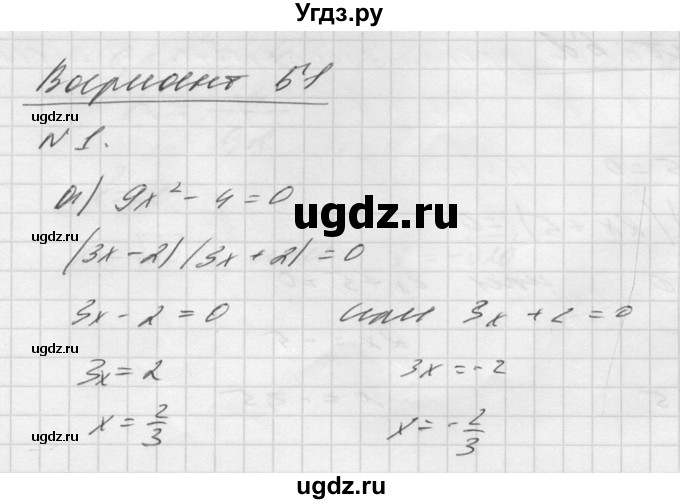 Угдз.ру
Вариант 51
ugdz.ru
N 1.
а) 9x² - 4 = 0
ugdz.ru
ugdz.ru
(3x - 2)(3x + 2) = 0
3x - 2 = 0 или 3x + 2 = 0
ugdz.ru
3x = 2 3x = -2
x = 2/3 x = -2/3
ugdz.ru
ugdz.ru